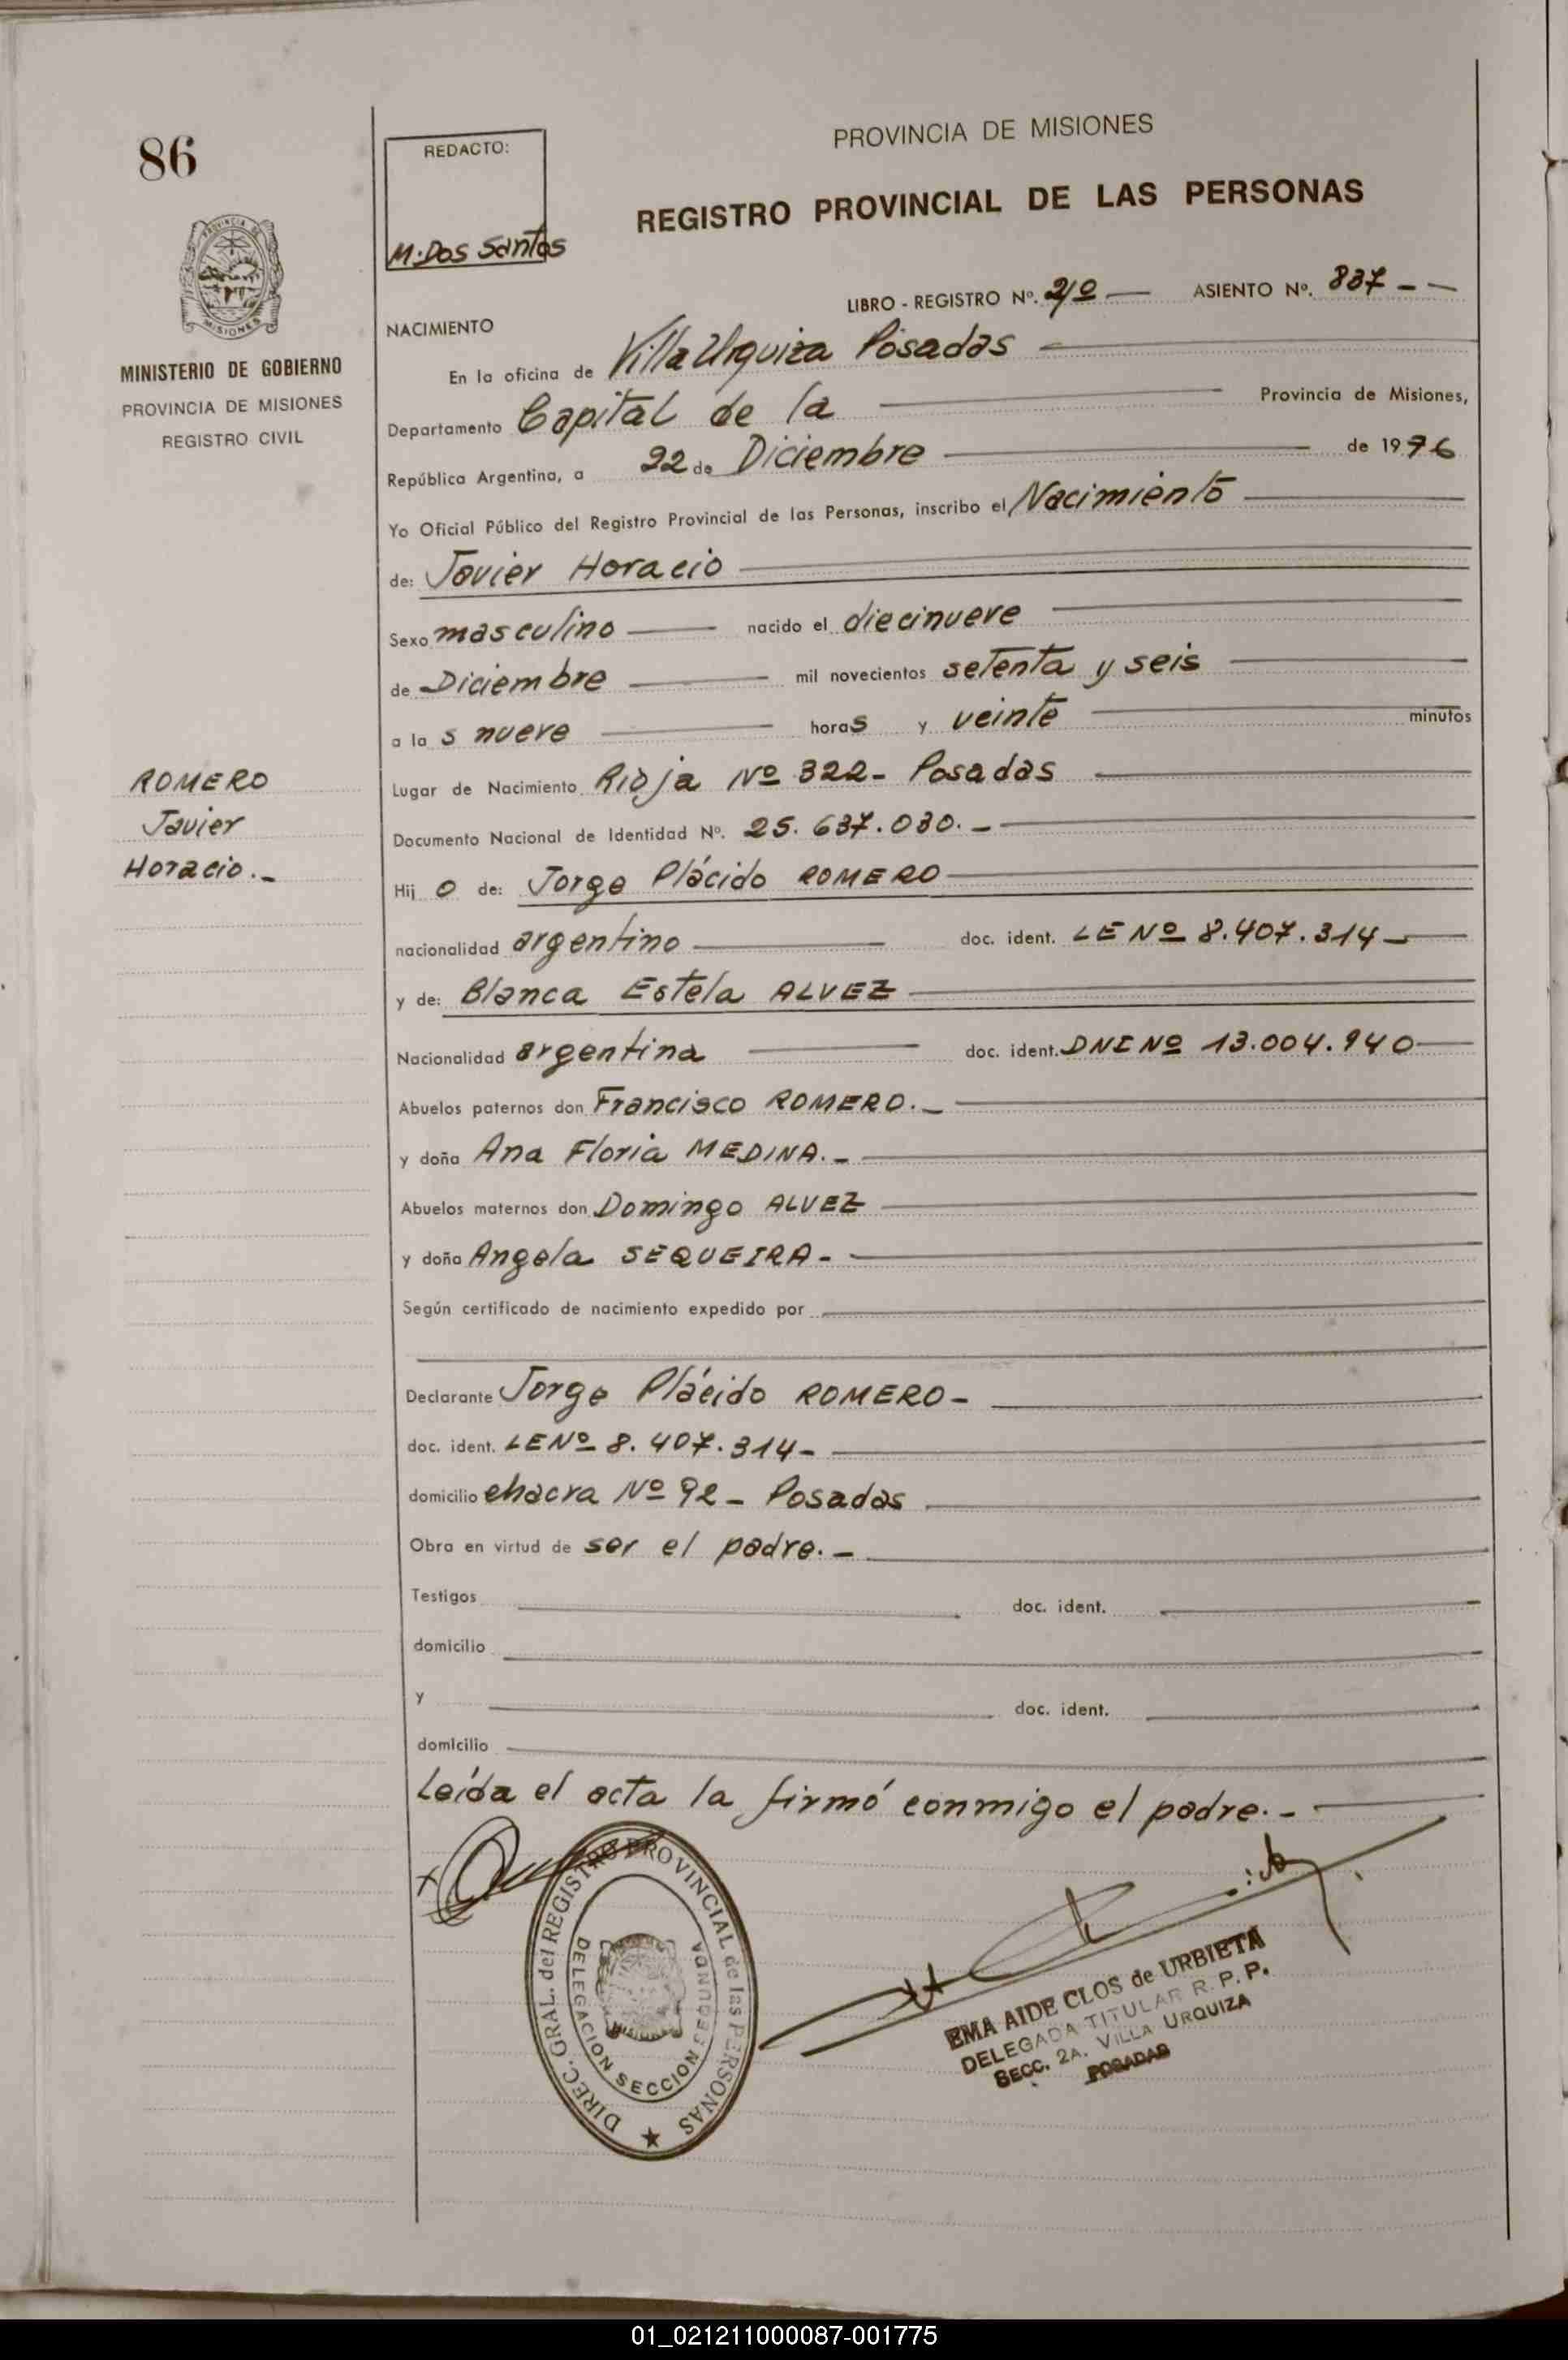 86
PROVINCIA DE MISIONES
REDACTO:
M. Dos Santos
REGISTRO PROVINCIAL DE LAS PERSONAS
PROVINCIA DE
MISIONES
MINISTERIO DE GOBIERNO
PROVINCIA DE MISIONES
REGISTRO CIVIL
LIBRO - REGISTRO Nº. 2/º — ASIENTO Nº. 837 - -
NACIMIENTO
En la oficina de Villa Urquiza Posadas
Departamento Capital de la Provincia de Misiones,
República Argentina, a 22 de Diciembre de 1976
Yo Oficial Público del Registro Provincial de las Personas, inscribo el Nacimiento
de: Javier Horacio
Sexo masculino nacido el diecinueve
de Diciembre mil novecientos setenta y seis
a la s nueve horas y veinte minutos
Lugar de Nacimiento Rioja Nº 322- Posadas
ROMERO
Javier
Horacio.-
Documento Nacional de Identidad Nº. 25.637.030.-
Hij o de: Jorge Plácido ROMERO
nacionalidad argentino doc. ident. LE Nº 8.407.314-
y de: Blanca Estela ALVEZ
Nacionalidad argentina doc. ident. DNI Nº 13.004.940
Abuelos paternos don Francisco ROMERO.-
y doña Ana Floria MEDINA.-
Abuelos maternos don Domingo ALVEZ
y doña Angela SEQUEIRA-
Según certificado de nacimiento expedido por
Declarante Jorge Plácido ROMERO-
doc. ident. LE Nº 8.407.314-
domicilio chacra Nº 92- Posadas
Obra en virtud de ser el padre.-
Testigos doc. ident.
domicilio
y doc. ident.
domicilio
Leída el acta la firmó conmigo el padre.-
DIREC. GRAL. del REGISTRO PROVINCIAL de las PERSONAS
DELEGACION SECCION SEGUNDA
EMA AIDE CLOS de URBIETA
DELEGADA TITULAR R. P. P.
SECC. 2A. VILLA URQUIZA
POSADAS
01_021211000087-001775